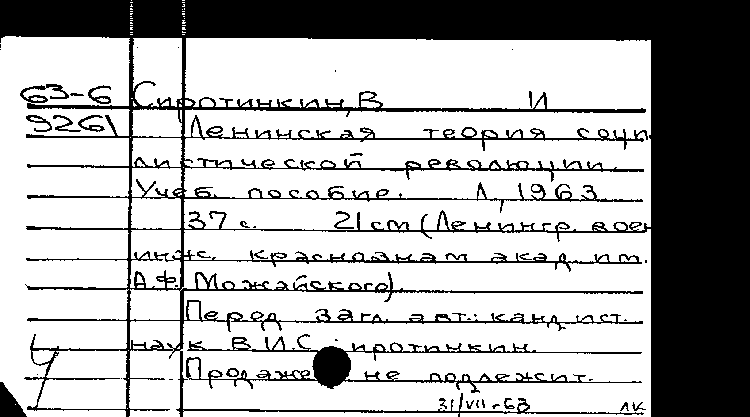 63-6 Сиротинкин, В И
9261 Ленинская теория соци
листической революции.
Учеб. пособие. Л, 1963
37 с. 21 см (Ленингр. воен
инж. краснознам акад им.
А.Ф. Можайского).
Перед загл авт.: канд ист.
наук В.И.С иротинкин.
Продаже не подлежит.
31/VII-63 ЛК